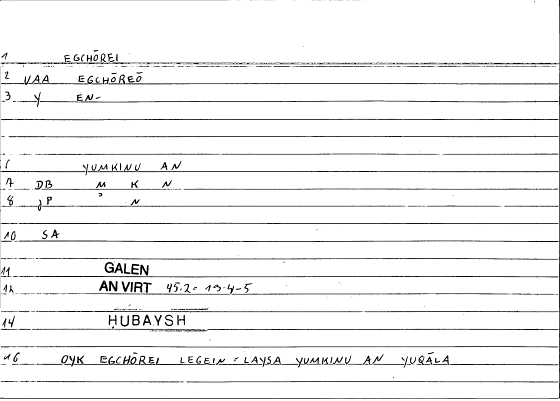 1 EGCHŌREI
2 VAA EGCHŌREŌ
3 Y EN-
6 YUMKINU AN
7 DB M K N
8 JP ʾ N
10 SA
11 GALEN
12 AN VIRT 45.2 = 19.4-5
14 ḤUBAYSH
16 OYK EGCHŌREI LEGEIN = LAYSA YUMKINU AN YUQĀLA